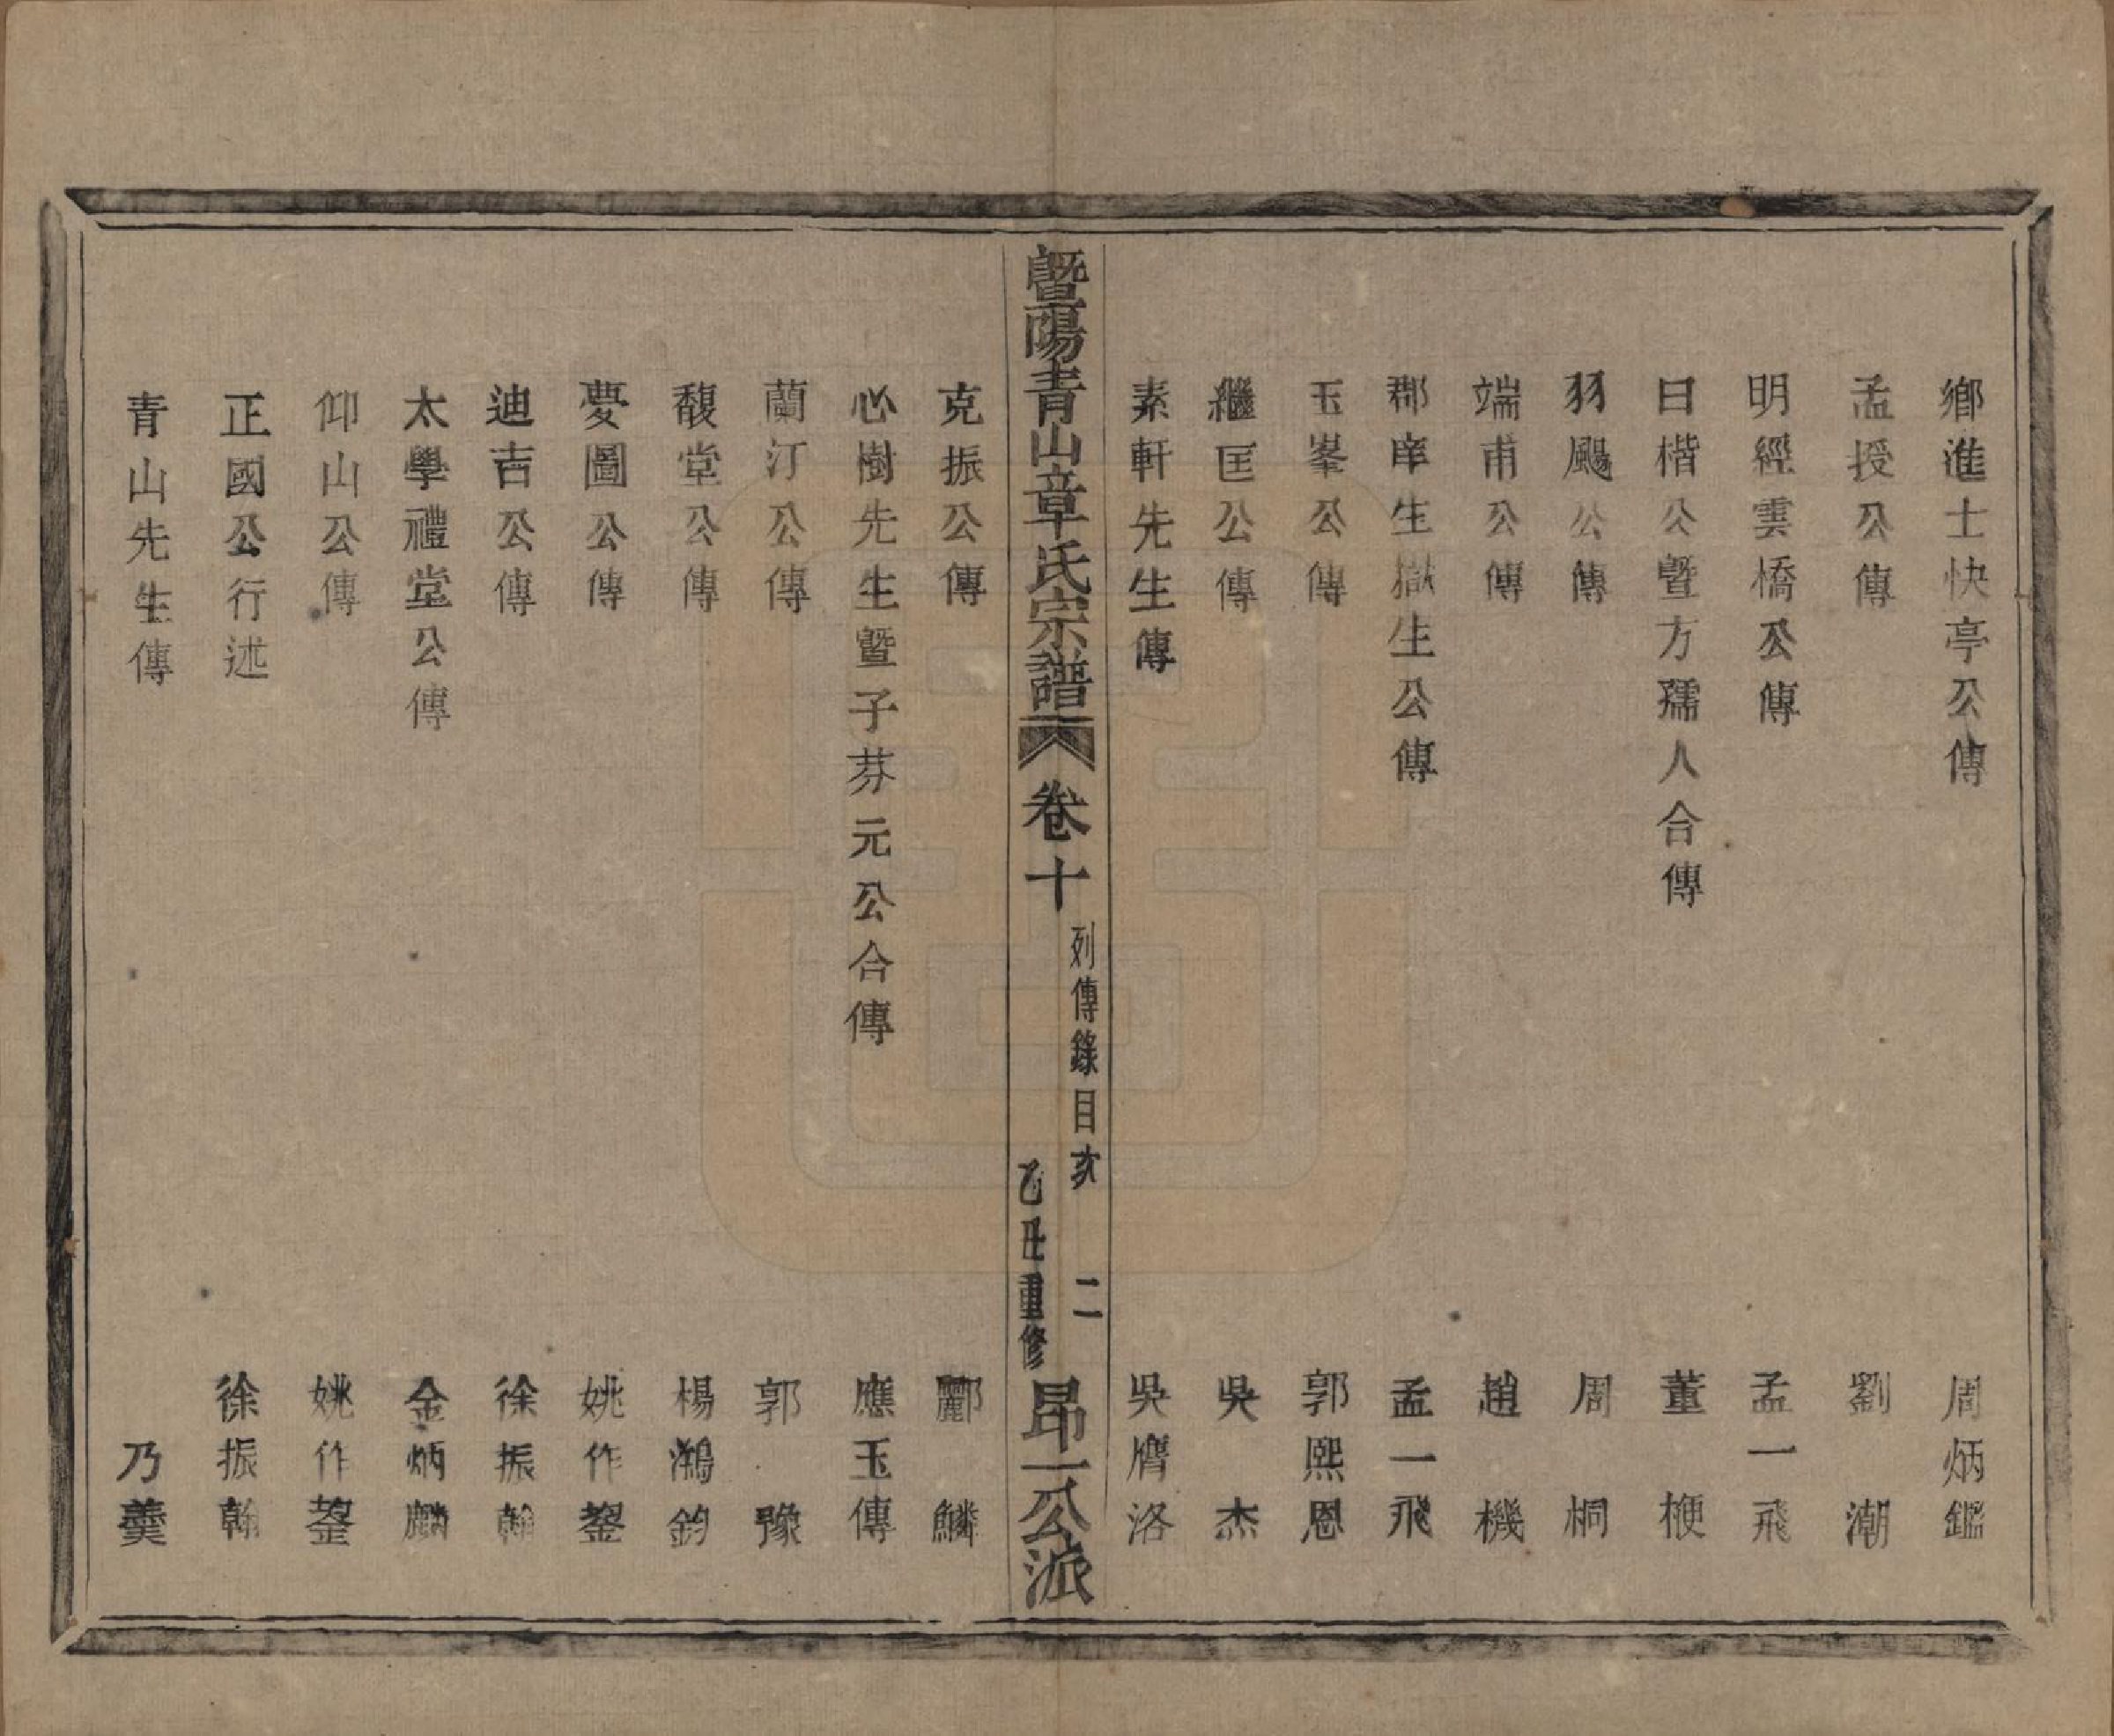 鄉進士快亭公傳 周炳鑑
孟授公傳 劉潮
明經雲橋公傳 孟一飛
曰楷公暨方孺人合傳 董楩
羽颺公傳 周桐
端甫公傳 趙機
郡庠生嶽生公傳 孟一飛
玉峯公傳 郭熙恩
繼匡公傳 吳杰
素軒先生傳 吳膺洛
暨陽青山章氏宗譜 卷十 列傳錄目亥 二 乙丑重修 昂一公派
克振公傳 酈鱗
心樹先生暨子芬元公合傳 應玉傳
蘭汀公傳 郭豫
馥堂公傳 楊鴻鈞
夢圖公傳 姚作鋆
迪吉公傳 徐振翰
太學禮堂公傳 金炳麟
仰山公傳 姚作鋆
正國公行述 徐振翰
青山先生傳 乃羹